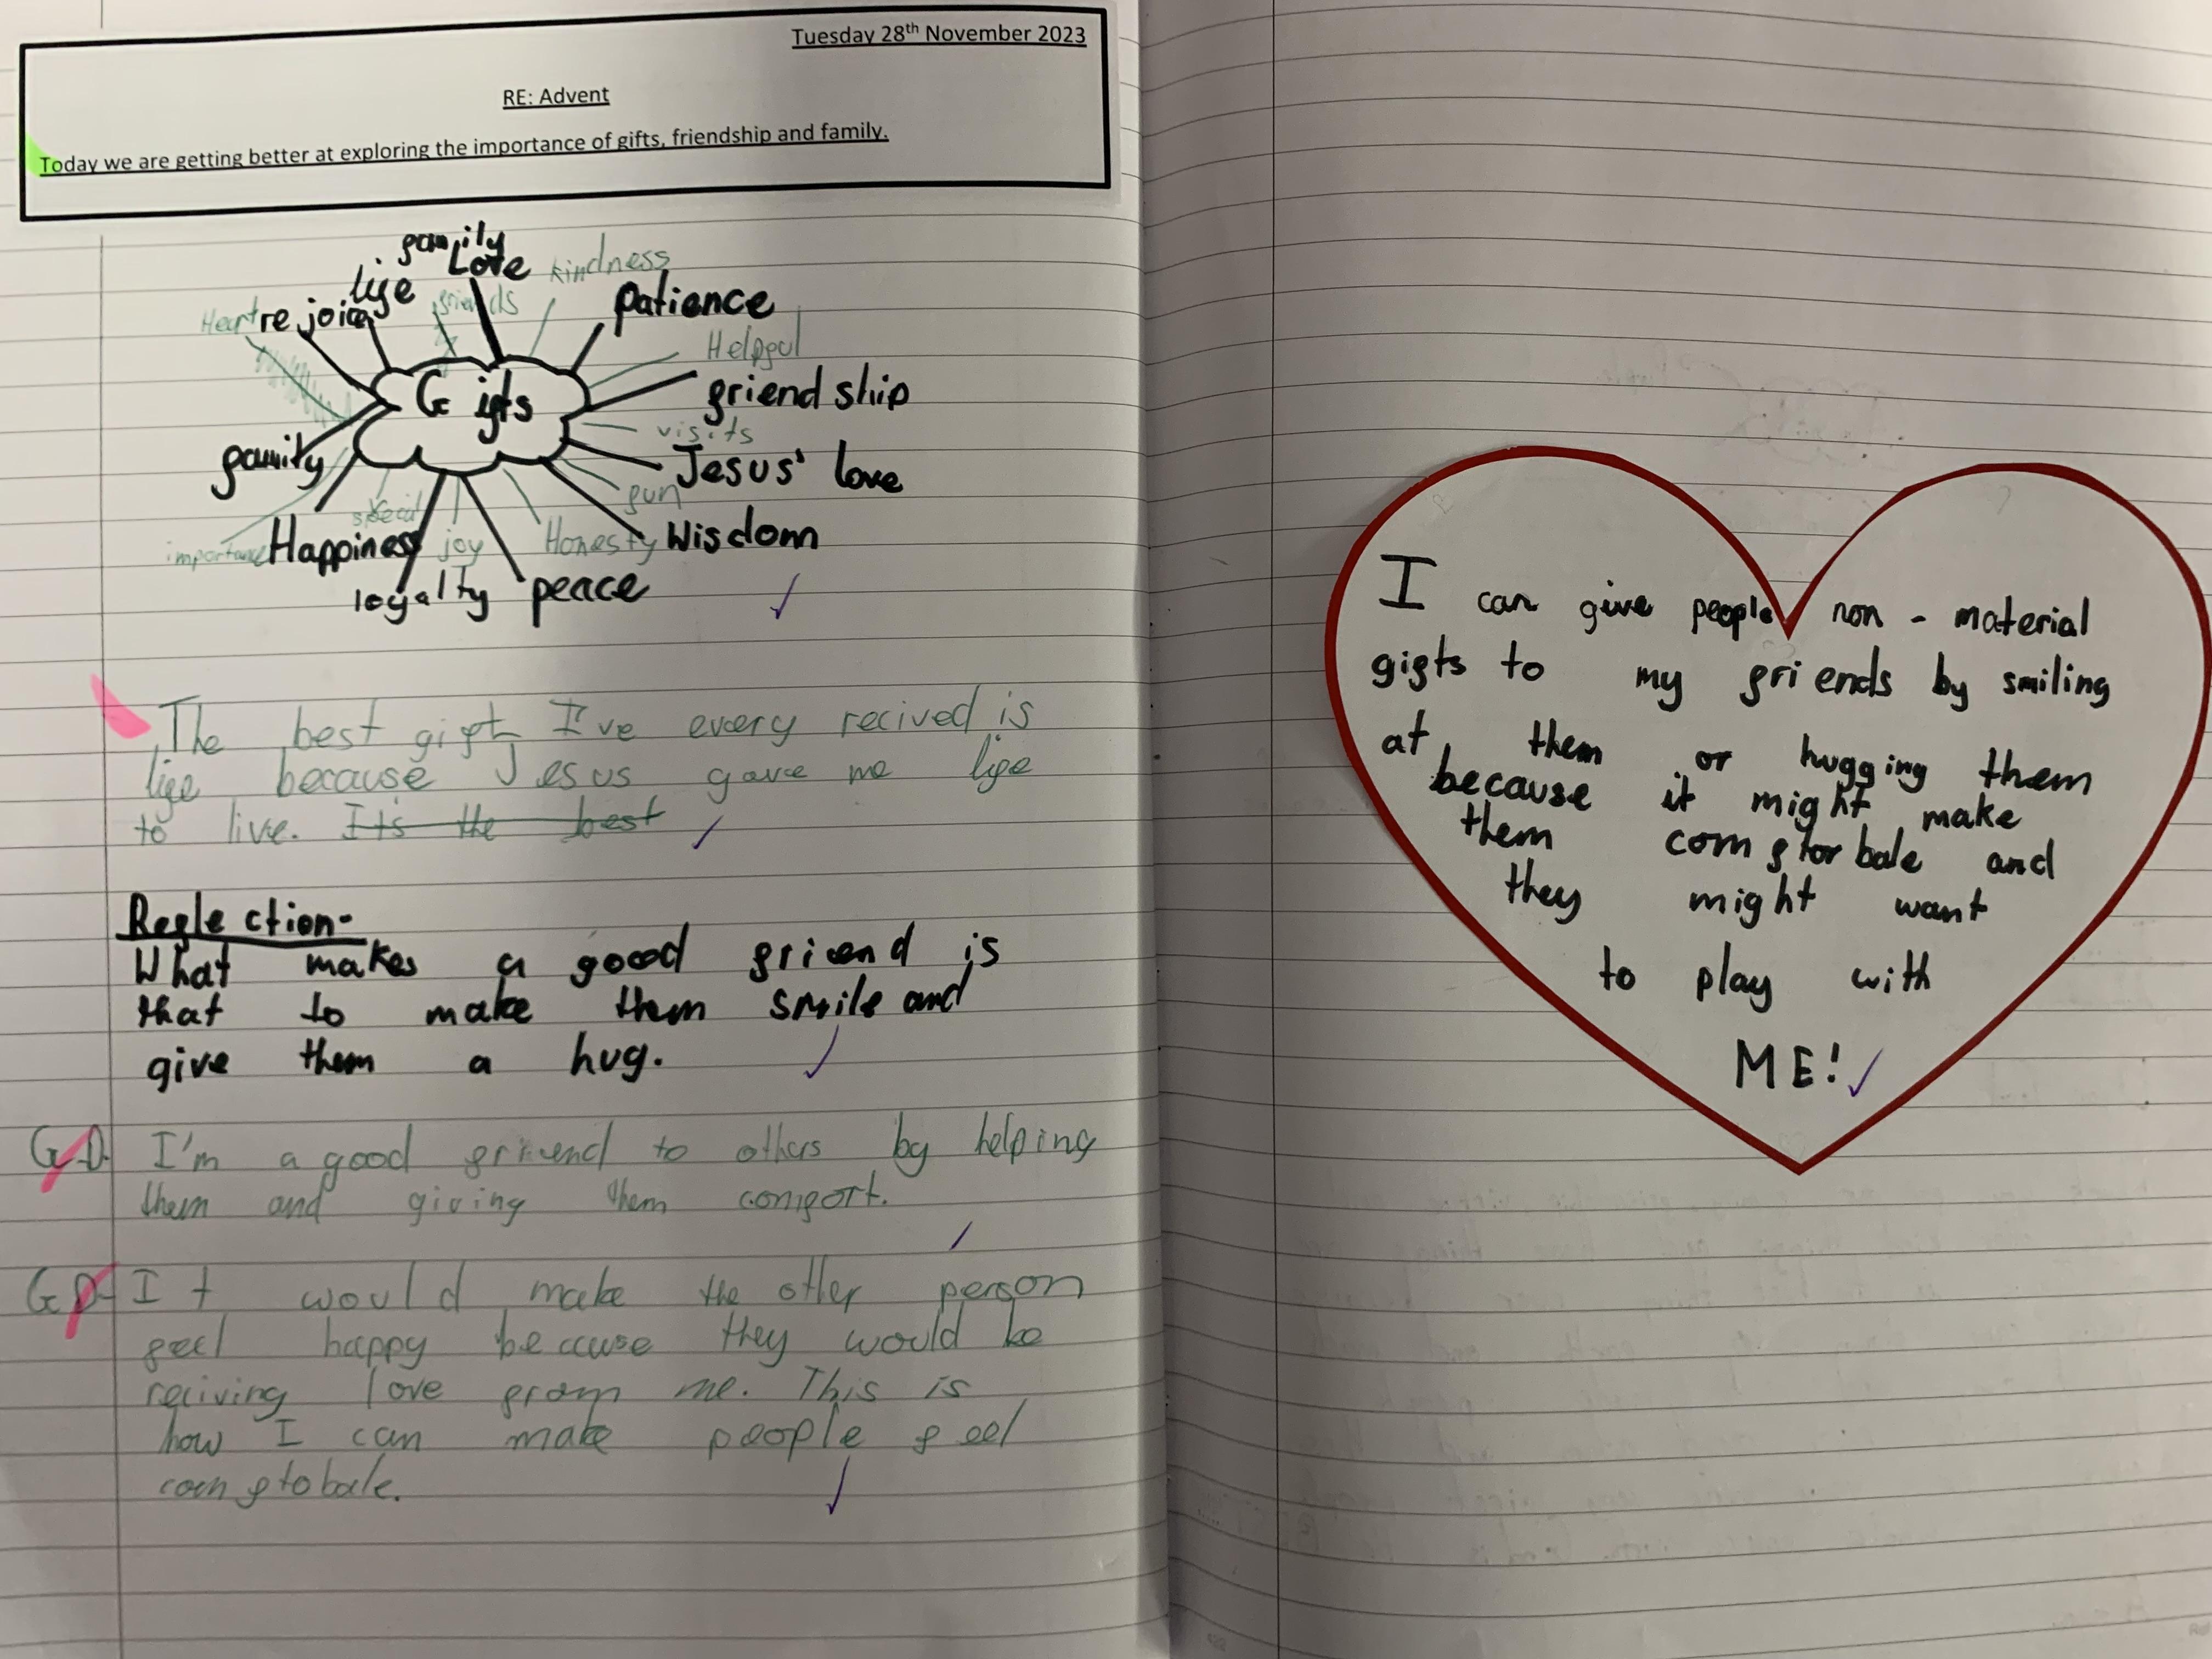 Tuesday 28th November 2023
RE: Advent
Today we are getting better at exploring the importance of gifts, friendship and family.
family
Love
kindness
life
friends
patience
Heart
rejoice
Helpful
Gifts
friend ship
visits
family
Jesus' love
fun
special
importance
Happiness
joy
Honesty
Wisdom
loyalty
peace
The best gift I've every recived is
life because Jesus gave me life
to live. It's the best
Reflection-
What makes a good friend is
that to make them smile and
give them a hug.
GD I'm a good friend to others by helping
them and giving them comfort.
GD- It would make the other person
feel happy because they would be
reciving love from me. This is
how I can make people feel
comftobale.
I can give people non-material
gifts to my friends by smiling
at them or hugging them
because it might make
them comftorbale and
they might want
to play with
ME!